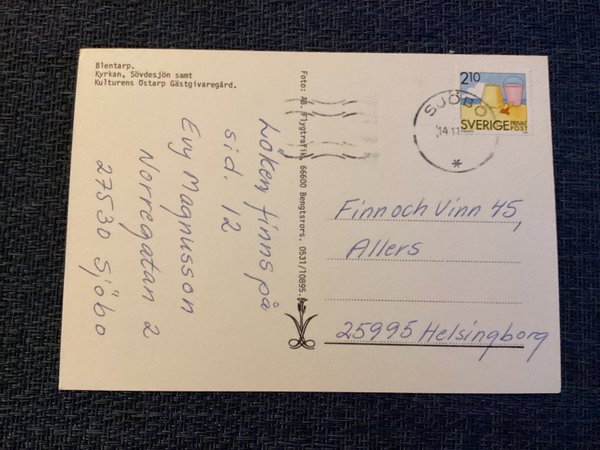 Blentarp.
Kyrkan, Sövdesjön samt
Kulturens Östarp Gästgivaregård.
Löken finns på
sid. 12
Evy Magnusson
Norregatan 2
27530 Sjöbo
Foto: AB. Flygtrafik, 66600 Bengtsfors. 0531/10895.
2.10
SVERIGE PRIVAT POST
SJÖBO
14 11
Finn och Vinn 45,
Allers
25995 Helsingborg